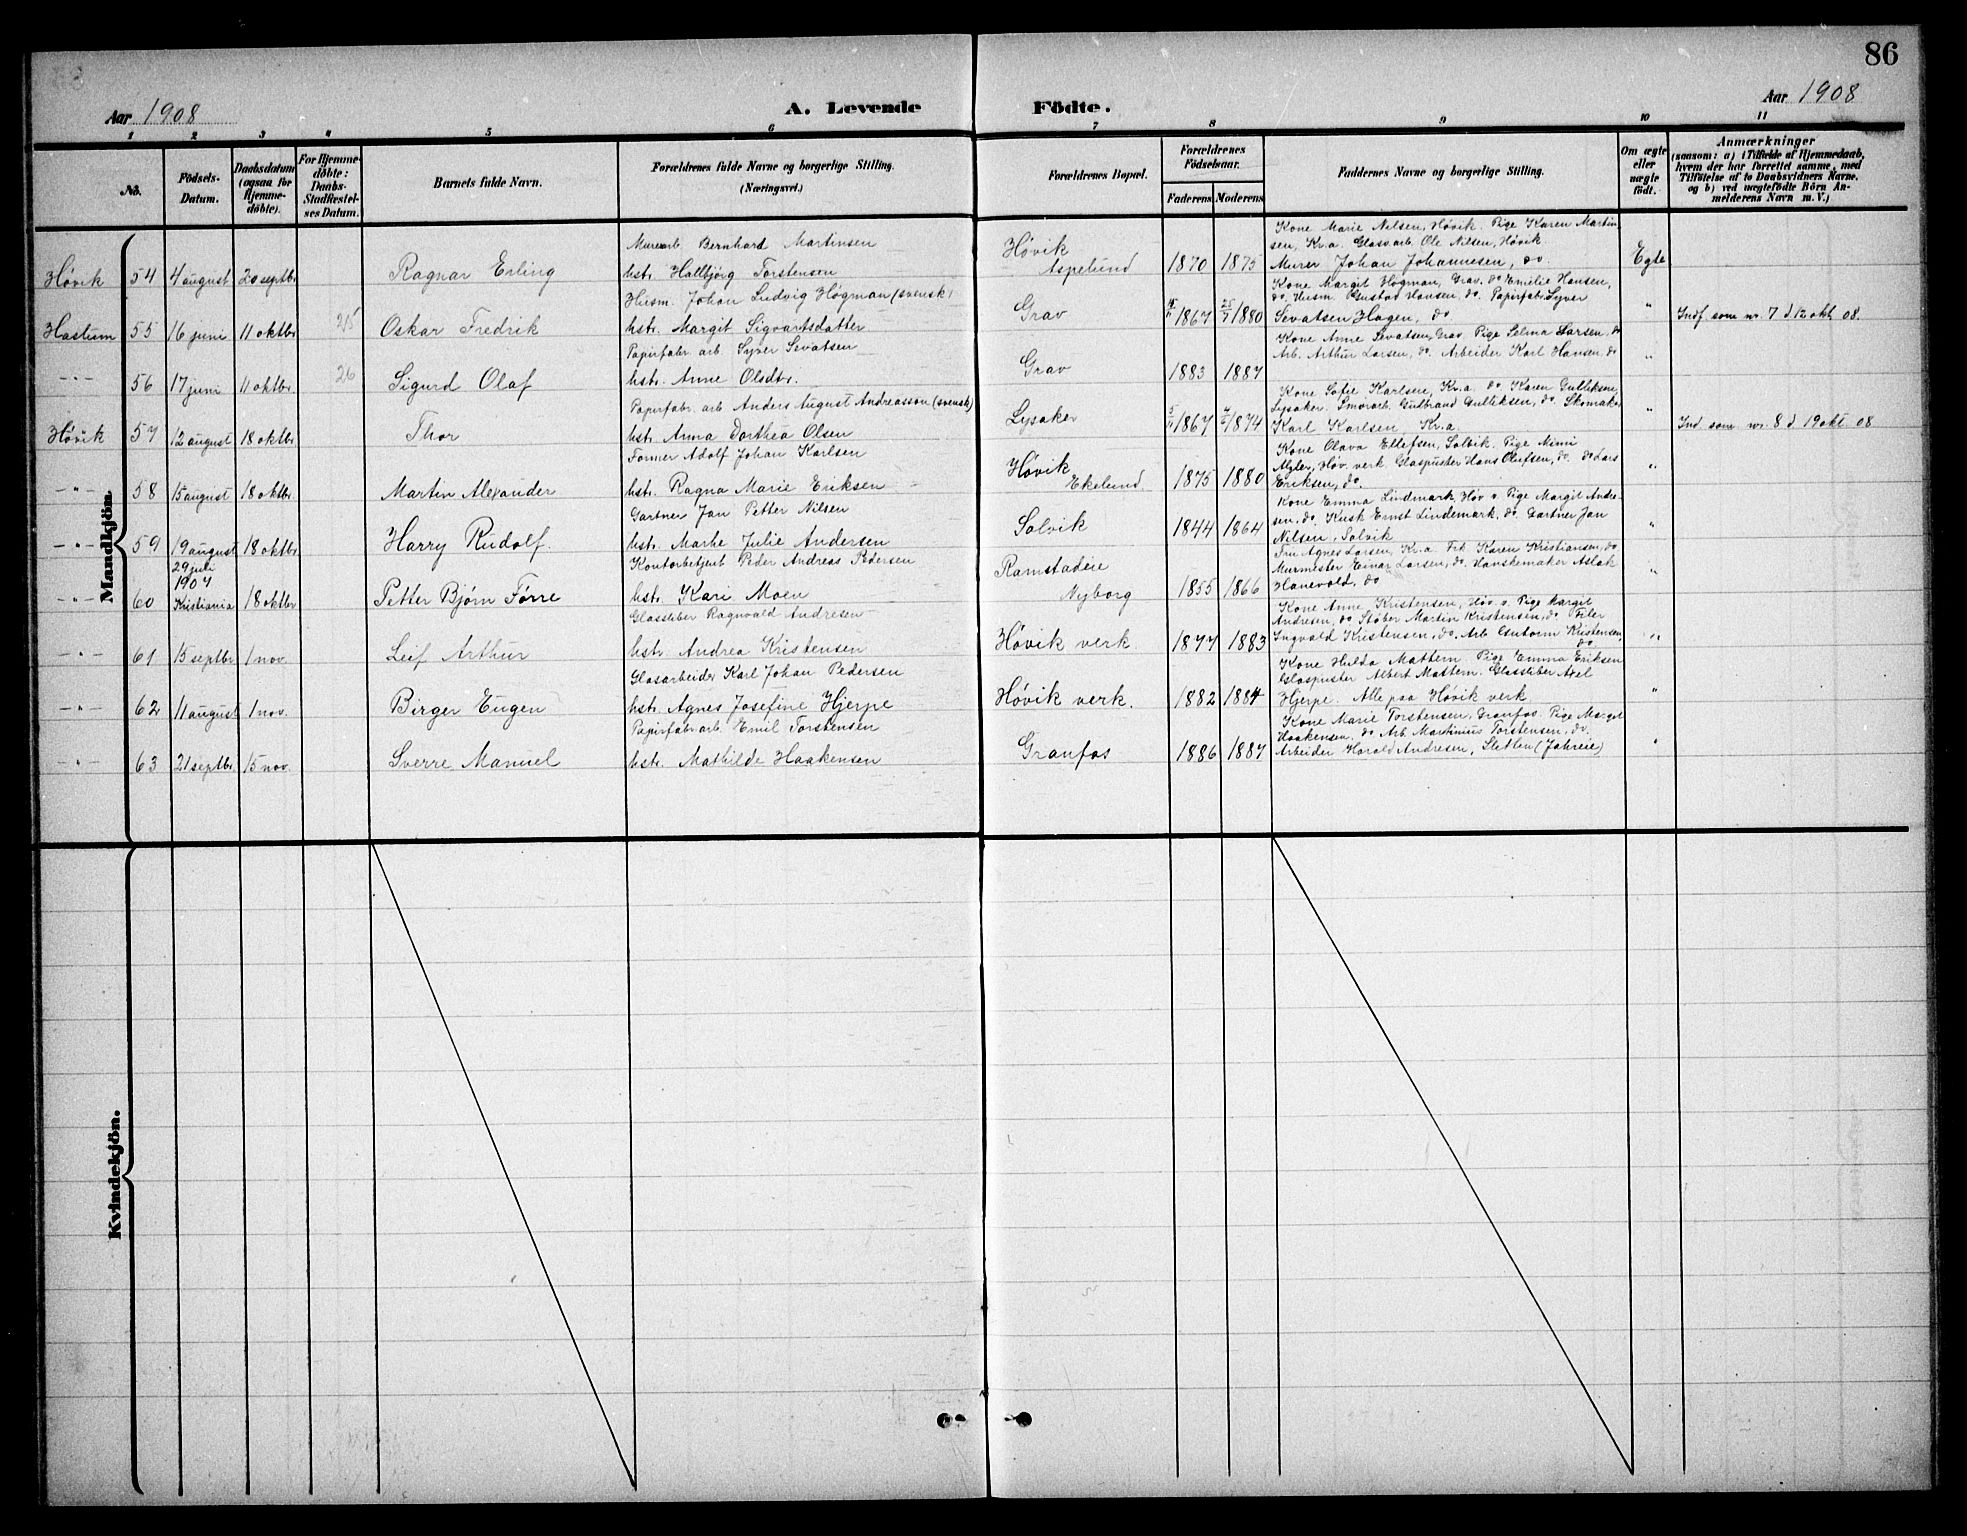 86
Aar 1908
A. Levende Födte.
Aar 1908
1 2 3 4 5 6 7 8 9 10 11
No.
Födsels-Datum.
Daabsdatum (ogsaa for Hjemme-döbte).
For Hjemme-döbte: Daabs-Stadfæstel-ses Datum.
Barnets fulde Navn.
Forældrenes fulde Navne og borgerlige Stilling. (Næringsvei.)
Forældrenes Bopæl.
Forældrenes Födselsaar.
Faderens Moderens
Faddernes Navne og borgerlige Stilling.
Om ægte eller uægte födt.
Anmærkninger (saasom: a) i Tilfælde af Hjemmedaab, hvem der har forrettet samme, med Tilföielse af to Daabsvidners Navne, og b) ved uægtefödte Börn An-melderens Navn m. V.)
Mandkjön.
Murerarb. Bernhard Martinsen
Høvik 54 4 august 20 septbr Ragnar Erling hstr. Hallbjørg Torstensen
Høvik Aspelund 1870 1875
Kone Marie Nilsen, Høvik. Pige Karen Martin-
sen, Kv.a. Glasarb. Ole Nilsen, Høvik
Murer Johan Johannesen, do
Egte
Husm. Johan Ludvig Høgman (svensk)
Haslum 55 16 juni 11 oktbr 25 Oskar Fredrik hstr. Margit Sigvartsdatter
Grav 1867 25/7 1880
Kone Margit Høgman, Grav. do Emilie Hansen,
do. Husm. Gustav Hansen, do. Papirfabr. Syver
Sevatsen Hagen, do
" Indf som nr. 7 d. 12 okt 08.
Papirfabr. arb. Syver Sevatsen
-"- 56 17 juni 11 oktbr. 26 Sigurd Olaf hstr. Anne Olsdtr.
Grav 1883 1887
Kone Anne Sevatsen, Grav. Pige Selma Larsen, do
Arb. Arthur Larsen, do. Arbeider Karl Hansen, do
"
Papirfabr. arb. Anders August Andreasson (svensk)
Høvik 57 12 august 18 oktbr. Thor hstr. Anna Dorthea Olsen
Lysaker 1867 1874
Kone Sofie Karlsen, Kv.a. do Karen Gulliksen
Lysaker. Smørarb. Gulbrand Gulliksen, do. Skomaker
Karl Karlsen, Kv.a.
" Ind. som nr. 8 d. 19 okt. 08
Former Adolf Johan Karlsen
-"- 58 15 august 18 oktbr. Martin Alexander hstr. Ragna Marie Eriksen
Høvik Ekelund 1875 1880
Kone Olava Ellefsen, Solvik. Pige Mimi
Høv. verk Glaspuster Hans Olufsen, do. do Lars
Eriksen, do.
"
Gartner Jan Petter Nilsen
-"- 59 19 august 18 oktbr. Harry Rudolf. hstr. Marhe Julie Andersen
Solvik 1844 1864
Kone Emma Lindmark, Høv v. Pige Margit Andre-
sen, do. Kusk Ernst Lindemark, do. Gartner Jan
Nilsen, Solvik
"
Kontorbetjent Peder Andreas Pedersen
-"- 60 29 juli 1907 Kristiania 18 oktbr Petter Bjørn Førre hstr. Kari Moen
Ramstadeie Nyborg 1855 1866
Fru Agnes Larsen, Kv.a. Frk Karen Kristiansen, do
Murmester Einar Larsen, do. Hanskemaker Aslak
Hanevold, do
"
Glassliber Ragnvald Andresen
-"- 61 15 septbr 1 nov. Leif Arthur hstr. Andrea Kristensen
Høvik verk. 1877 1883
Kone Anne Kristensen, Høv v. Pige Margit
Andresen, do Støber Martin Kristensen, do. Filer
Ingvald Kristensen, do. Arb Gutorm Kristensen,
do.
"
Glasarbeider Karl Johan Pedersen
-"- 62 11 august 1 nov. Birger Eugen hstr. Agnes Josefine Hjerpe
Høvik verk. 1882 1884
Kone Hulda Mattern. Pige Emma Eriksen
Glaspuster Albert Mattern. Glassliber Axel
Hjerpe. Alle paa Høvik verk
"
Papirfabr. arb. Emil Torstensen
-"- 63 21 septbr. 15 nov. Sverre Manuel hstr. Mathilde Haakensen
Granfos 1886 1887
Kone Marie Torstensen, Granfos. Pige Margit
Haakensen, do Arb Martinius Torstensen, do.
Arbeider Harald Andresen, Sletten (Jahreie)
"
Kvindekjön.